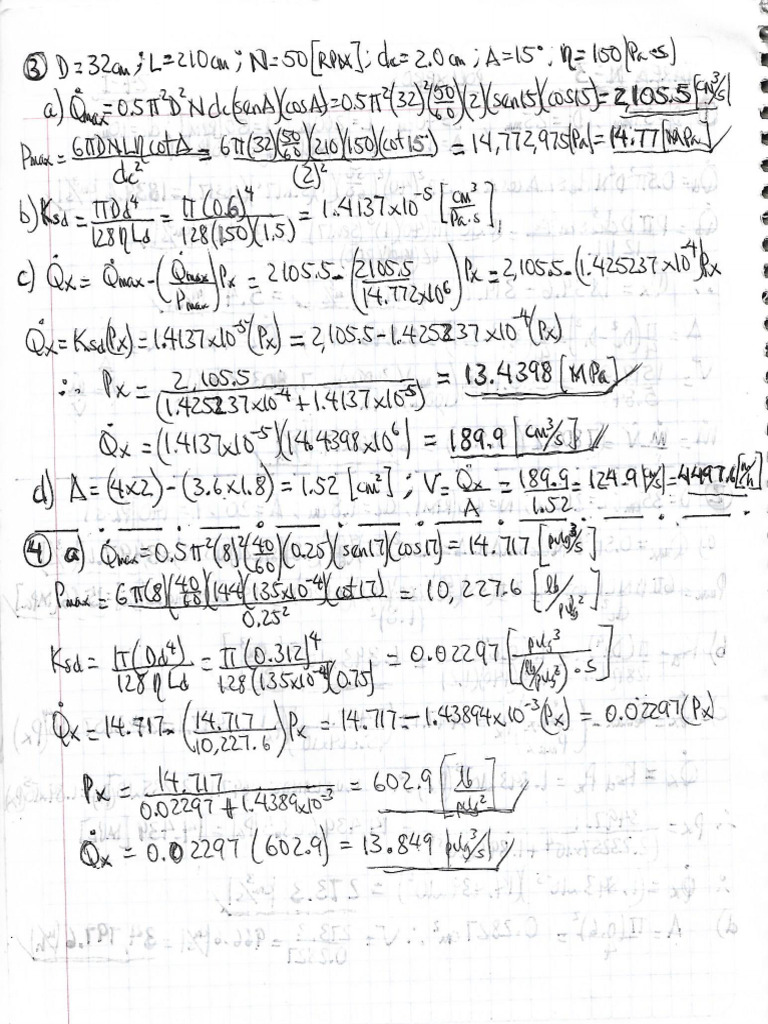 ③ D=32cm; L=210cm; N=50[RPM]; dc=2.0cm; A=15°; η=150[Pa·s]
a) Q̇max=0.5π²D²Ndc(senA)(cosA)=0.5π²(32)²(50/60)(2)(sen15)(cos15)=2,105.5[cm³/s]
Pmax=6πDNLηcotA/dc²=6π(32)(50/60)(210)(150)(cot15)/(2)²=14,772,975[Pa]=14.77[MPa]
b) Ksd=πDd⁴/128ηLd=π(0.6)⁴/128(150)(1.5)=1.4137x10⁻⁵[cm³/Pa·s]
c) Q̇x=Q̇max-(Q̇max/Pmax)Px=2105.5-(2105.5/14.772x10⁶)Px=2,105.5-(1.425237x10⁻⁴)Px
Q̇x=Ksd(Px)=1.4137x10⁻⁵(Px)=2,105.5-1.425237x10⁻⁴(Px)
∴ Px=2,105.5/(1.425237x10⁻⁴+1.4137x10⁻⁵)=13.4398[MPa]
Q̇x=(1.4137x10⁻⁵)(14.4398x10⁶)=189.9[cm³/s]
d) A=(4x2)-(3.6x1.8)=1.52[cm²]; V=Q̇x/A=189.9/1.52=124.9[cm/s]=4497.6[m/h]
④ a) Q̇max=0.5π²(8)²(40/60)(0.25)(sen17)(cos17)=14.717[pulg³/s]
Pmax=6π(8)(40/60)(144)(135x10⁻⁴)(cot17)/0.25²=10,227.6[lb/pulg²]
Ksd=π(Dd⁴)/128ηLd=π(0.312)⁴/128(135x10⁻⁴)(0.75)=0.02297[pulg³/(lb/pulg²)·s]
Q̇x=14.717-(14.717/10,227.6)Px=14.717-1.43894x10⁻³(Px)=0.02297(Px)
Px=14.717/0.02297+1.4389x10⁻³=602.9[lb/pulg²]
Q̇x=0.02297(602.9)=13.849[pulg³/s]